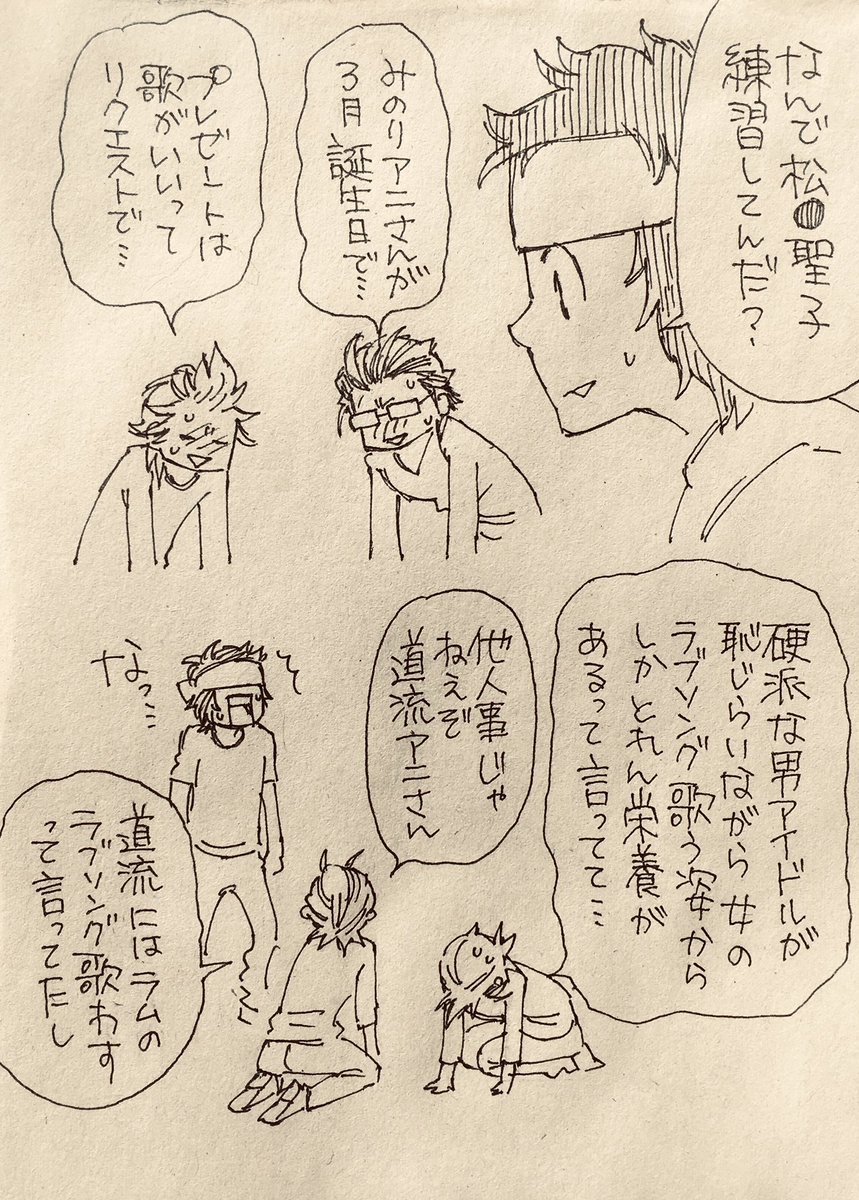 なんで松●聖子
練習してんだ？
みのりアニさんが
3月誕生日で…
プレゼートは
歌がいいって
リクエストで…
硬派な男アイドルが
恥じらいながら女の
ラブソング歌う姿から
しかとれん栄養が
あるって言ってて…
他人事じゃ
ねえぞ
道流アニさん
なっ…
道流にはラムの
ラブソング歌わす
って言ってたし